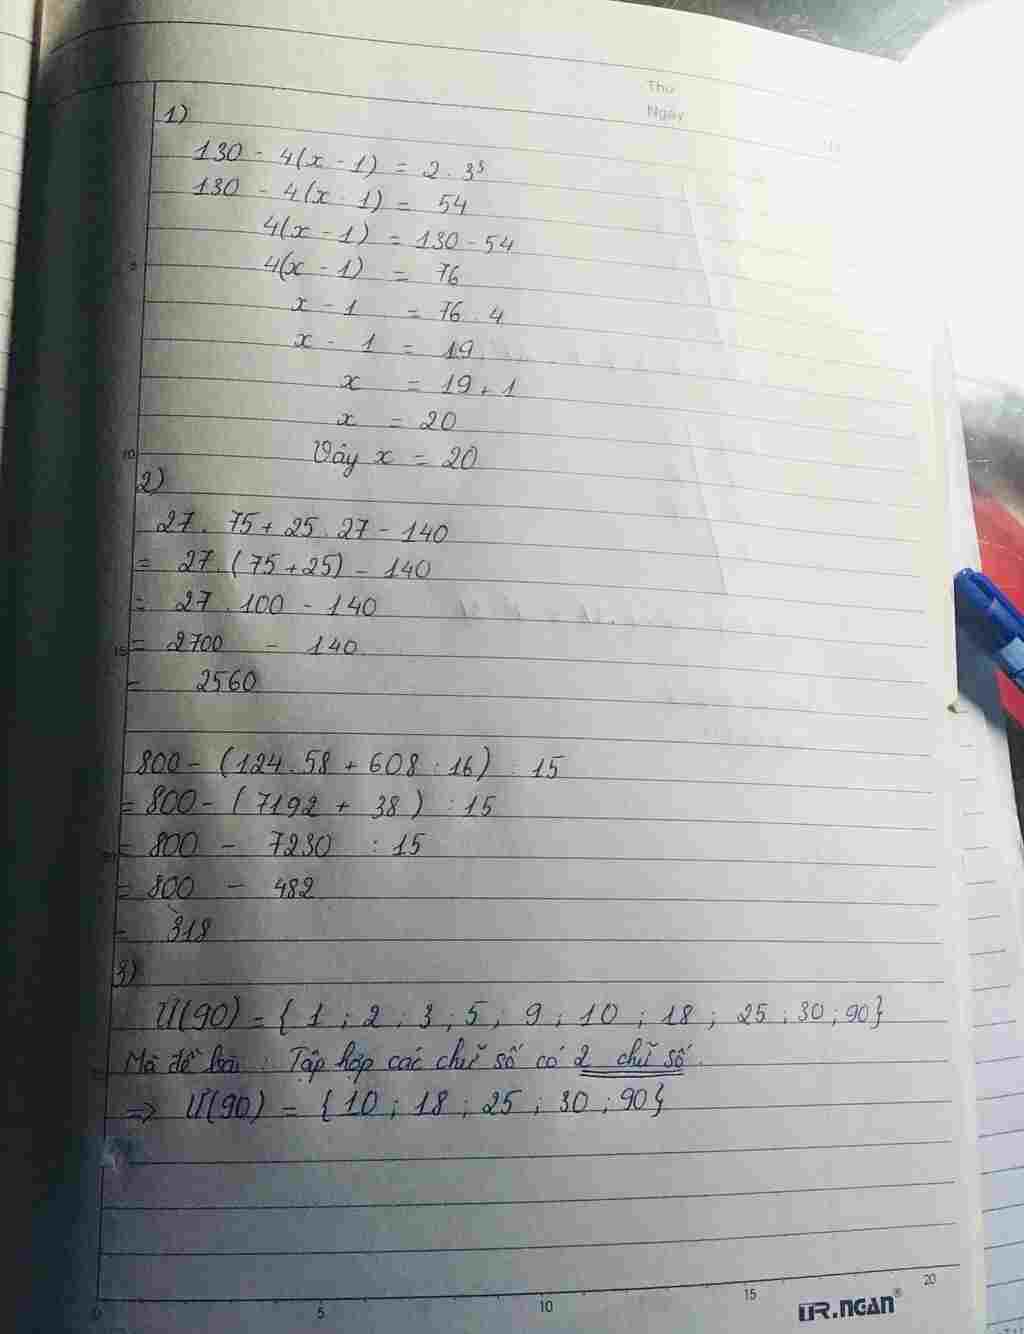 Thứ
Ngày
1)
130 - 4(x - 1) = 2 . 3³
130 - 4(x - 1) = 54
4(x - 1) = 130 - 54
4(x - 1) = 76
x - 1 = 76 : 4
x - 1 = 19
x = 19 + 1
x = 20
Vậy x = 20
2)
27 . 75 + 25 . 27 - 140
= 27 . (75 + 25) - 140
= 27 . 100 - 140
= 2700 - 140
= 2560
800 - (124 . 58 + 608 : 16) : 15
= 800 - (7192 + 38) : 15
= 800 - 7230 : 15
= 800 - 482
= 318
3)
Ư(90) = { 1 ; 2 ; 3 ; 5 ; 9 ; 10 ; 18 ; 25 ; 30 ; 90}
Mà đề bài : Tập hợp các chữ số có 2 chữ số.
=> Ư(90) = { 10 ; 18 ; 25 ; 30 ; 90}
0 5 10 15 20
UR.NGAN®